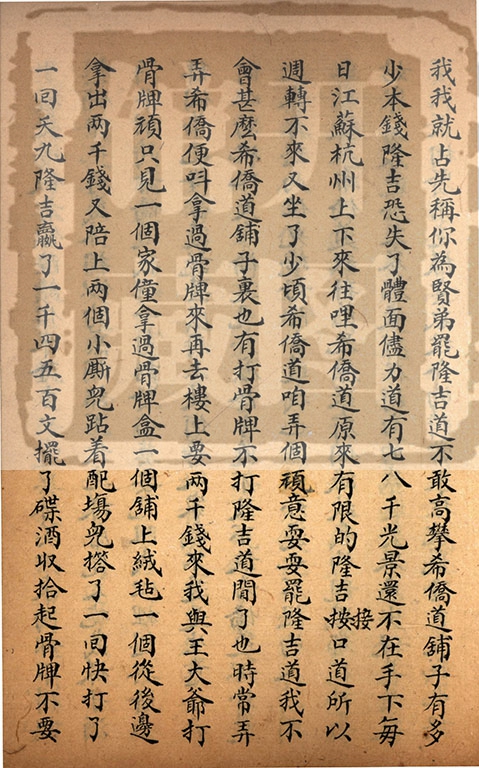 我我就占先稱你為賢弟罷隆吉道不敢高攀希僑道舖子有多
少本錢隆吉恐失了體面儘力道有七八千光景還不在手下每
日江蘇杭州上下來往哩希僑道原來有限的隆吉按接口道所以
週轉不來又坐了少頃希僑道咱弄個頑意耍耍罷隆吉道我不
會甚麽希僑道舖子裏也有打骨牌不打隆吉道閒了也時常弄
弄希僑便呌拿過骨牌來再去樓上要兩千錢來我與王大爺打
骨牌頑只見一個家僮拿過骨牌盒一個舖上絨毡一個從後邊
拿出两千錢又陪上两個小厮皃跕着配塲皃搭了一回快打了
一回天九隆吉贏了一千四五百文擺了碟酒収拾起骨牌不要